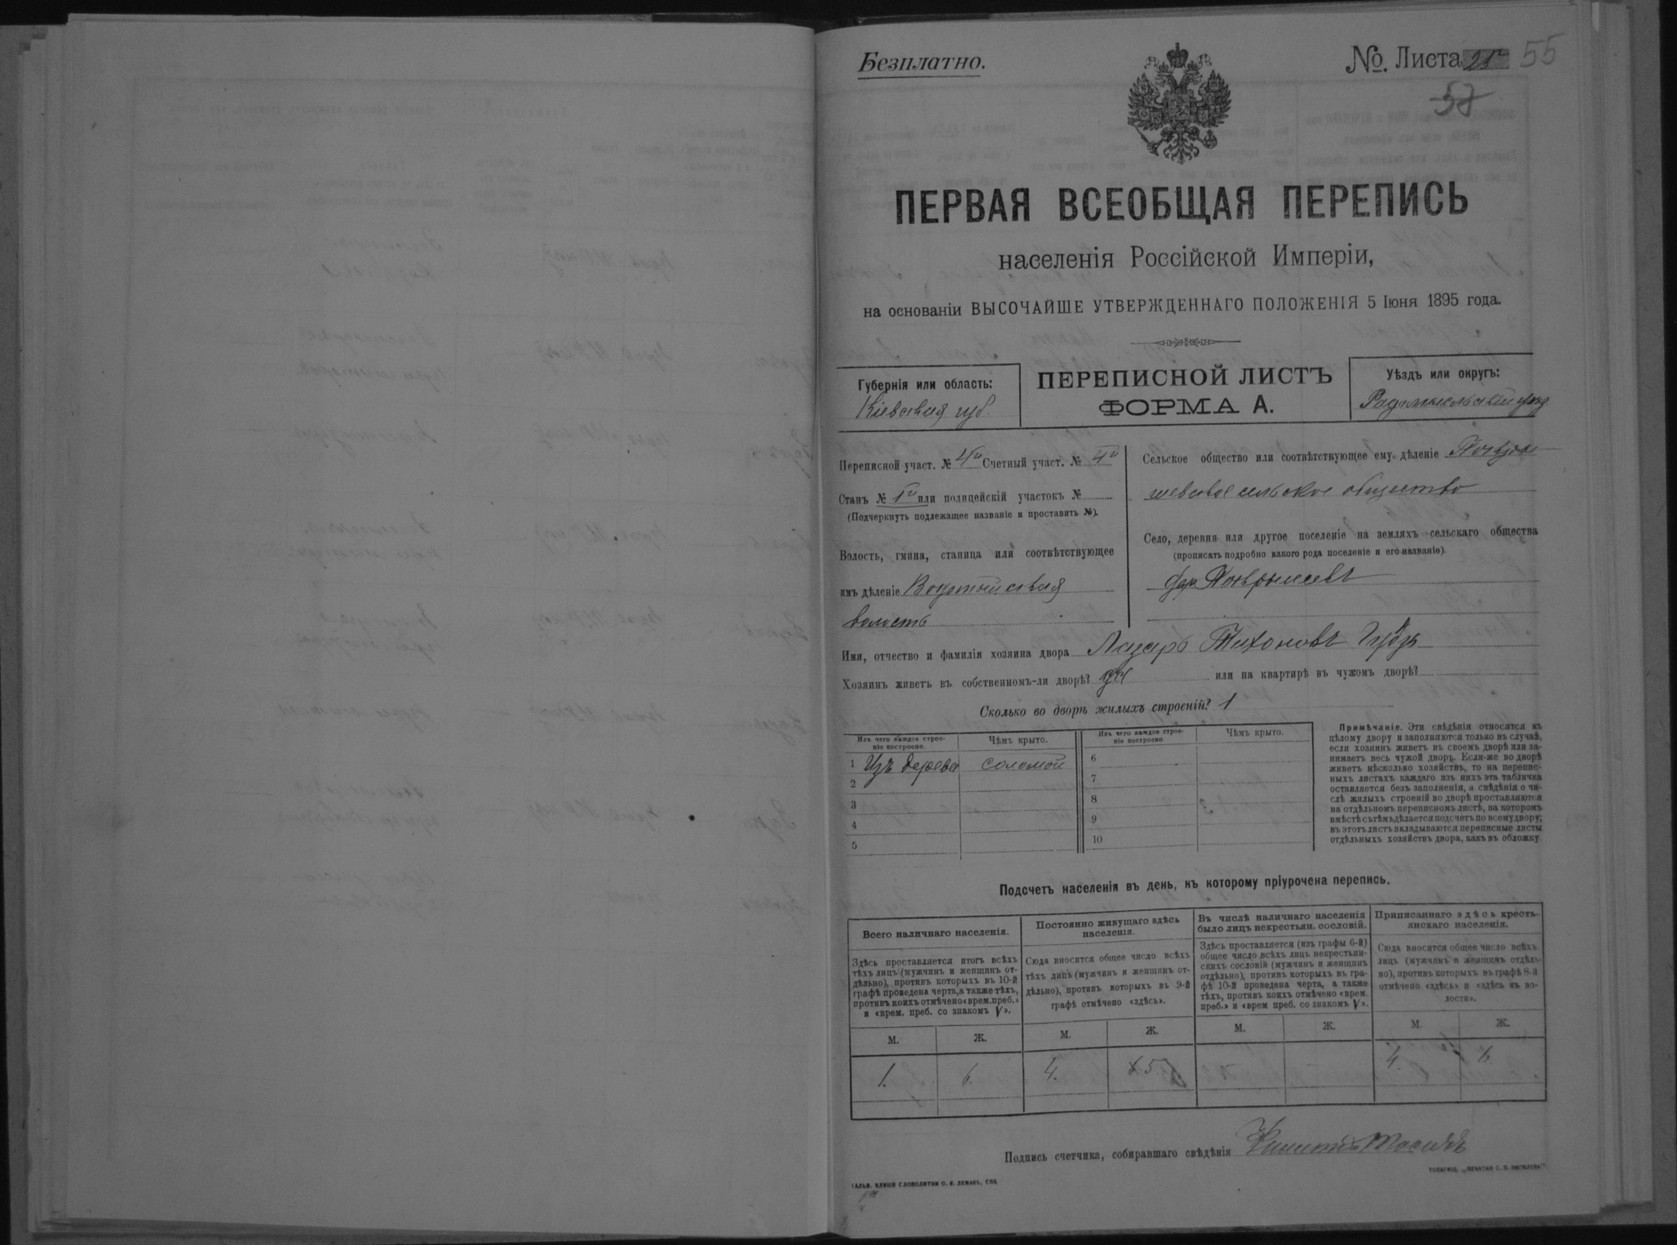 Безплатно.
№. Листа 55
57
ПЕРВАЯ ВСЕОБЩАЯ ПЕРЕПИСЬ
населенія Россійской Имперіи,
на основаніи ВЫСОЧАЙШЕ УТВЕРЖДЕННАГО ПОЛОЖЕНІЯ 5 Іюня 1895 года.
Губернія или область:
Кіевская губ.
ПЕРЕПИСНОЙ ЛИСТЪ
ФОРМА А.
Уѣздъ или округъ:
Радомысльскій уѣзд
Переписной участ. № 4й Счетный участ. №
Станъ № или полицейскій участокъ №
(Подчеркнуть подлежащее названіе и проставить №).
Волость, гмина, станица или соотвѣтствующее
имъ дѣленіе
волость
Сельское общество или соотвѣтствующее ему дѣленіе
сельское общество
Село, деревня или другое поселеніе на земляхъ сельскаго общества
(прописать подробно какого рода поселеніе и его названіе)
Имя, отчество и фамилія хозяина двора Лазарь Тихоновъ
Хозяинъ живетъ въ собственномъ-ли дворѣ? или на квартирѣ въ чужомъ дворѣ?
Сколько во дворѣ жилыхъ строеній? 1
Изъ чего каждое строе-
ніе построено.
Чѣмъ крыто.
Изъ чего каждое строе-
ніе построено.
Чѣмъ крыто.
1 Изъ дерева соломой 6
2 7
3 8
4 9
5 10
Примѣчаніе. Эти свѣдѣнія относятся къ
цѣлому двору и заполняются только въ случаѣ,
если хозяинъ живетъ въ своемъ дворѣ или за-
нимаетъ весь чужой дворъ. Если-же во дворѣ
живетъ нѣсколько хозяйствъ, то на перепис-
ныхъ листахъ каждаго изъ нихъ эта табличка
оставляется безъ заполненія, а свѣдѣнія о чи-
слѣ жилыхъ строеній во дворѣ проставляются
на отдѣльномъ переписномъ листѣ, на которомъ
вмѣстѣ съ тѣмъ дѣлается подсчетъ по всему двору;
въ этотъ листъ вкладываются переписные листы
отдѣльныхъ хозяйствъ двора, какъ въ обложку
Подсчетъ населенія въ день, къ которому пріурочена перепись.
Всего наличнаго населенія.
Здѣсь проставляется итогъ всѣхъ
тѣхъ лицъ (мужчинъ и женщинъ от-
дѣльно), противъ которыхъ въ 10-й
графѣ проведена черта, а также тѣхъ,
противъ коихъ отмѣчено «врем. преб.»
и «врем. преб. со знакомъ V».
Постоянно живущаго здѣсь
населенія.
Сюда вносится общее число всѣхъ
тѣхъ лицъ (мужчинъ и женщинъ от-
дѣльно), противъ которыхъ въ 9-й
графѣ отмѣчено «здѣсь».
Въ числѣ наличнаго населенія
было лицъ некрестьян. сословій.
Здѣсь проставляется (изъ графы 6-й)
общее число всѣхъ лицъ некрестьян-
скихъ сословій (мужчинъ и женщинъ
отдѣльно), противъ которыхъ въ гра-
фѣ 10-й проведена черта, а также
тѣхъ, противъ коихъ отмѣчено «врем.
преб.» и «врем преб. со знакомъ V».
Приписаннаго здѣсь кресть-
янскаго населенія.
Сюда вносится общее число всѣхъ
лицъ (мужчинъ и женщинъ отдѣль-
но), противъ которыхъ въ графѣ 8-й
отмѣчено «здѣсь» и «здѣсь въ во-
лости».
М. Ж. М. Ж. М. Ж. М. Ж.
1. 6. 4. 5 4. 6
Подпись счетчика, собиравшаго свѣдѣнія